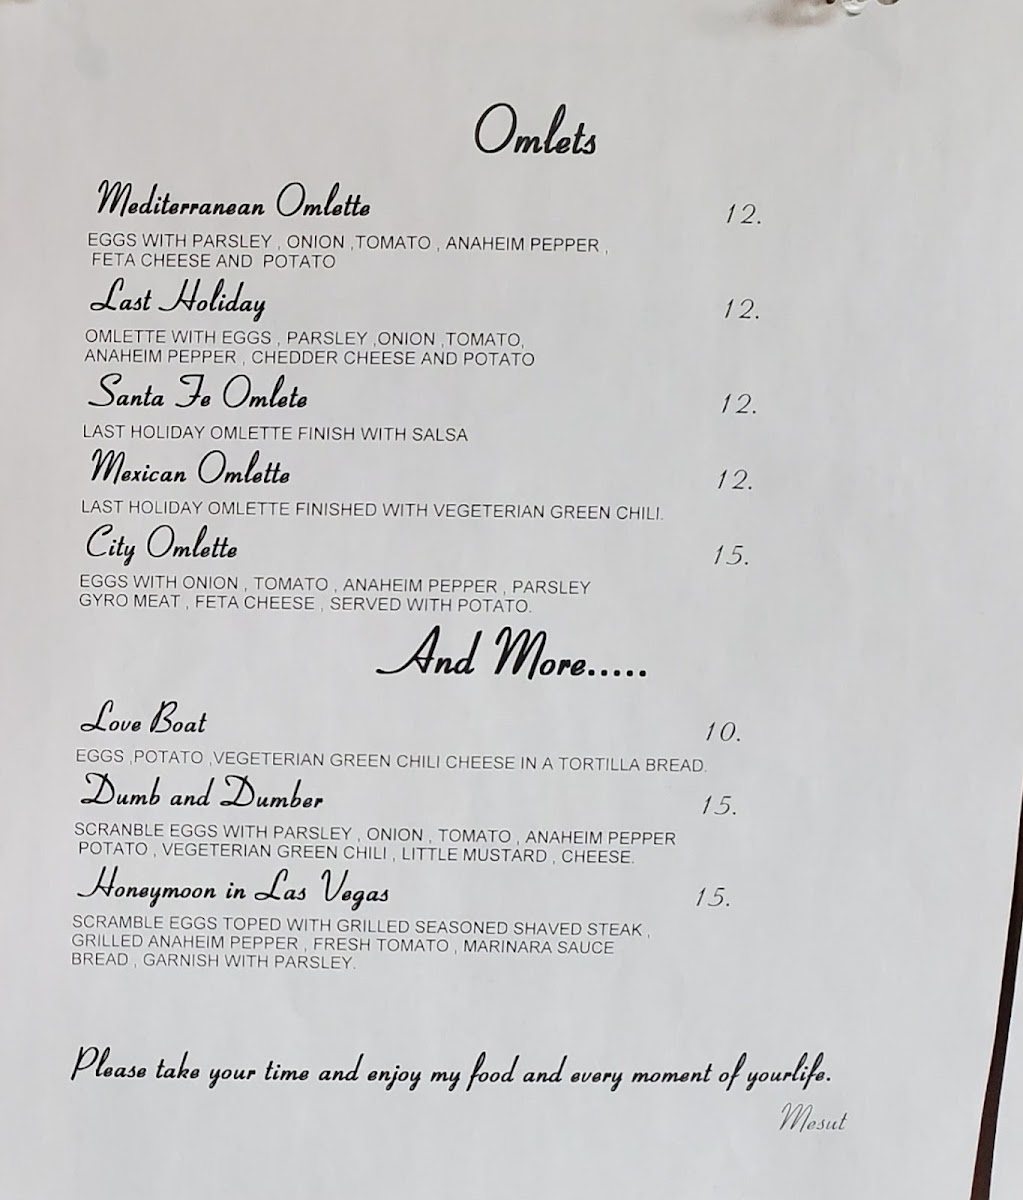 Omlets
Mediterranean Omlette 12.
EGGS WITH PARSLEY , ONION ,TOMATO , ANAHEIM PEPPER ,
FETA CHEESE AND POTATO
Last Holiday 12.
OMLETTE WITH EGGS , PARSLEY ,ONION ,TOMATO,
ANAHEIM PEPPER , CHEDDER CHEESE AND POTATO
Santa Fe Omlete 12.
LAST HOLIDAY OMLETTE FINISH WITH SALSA
Mexican Omlette 12.
LAST HOLIDAY OMLETTE FINISHED WITH VEGETERIAN GREEN CHILI.
City Omlette 15.
EGGS WITH ONION , TOMATO , ANAHEIM PEPPER , PARSLEY
GYRO MEAT , FETA CHEESE , SERVED WITH POTATO.
And More.....
Love Boat 10.
EGGS ,POTATO ,VEGETERIAN GREEN CHILI CHEESE IN A TORTILLA BREAD.
Dumb and Dumber 15.
SCRANBLE EGGS WITH PARSLEY , ONION , TOMATO , ANAHEIM PEPPER
POTATO , VEGETERIAN GREEN CHILI , LITTLE MUSTARD , CHEESE.
Honeymoon in Las Vegas 15.
SCRAMBLE EGGS TOPED WITH GRILLED SEASONED SHAVED STEAK ,
GRILLED ANAHEIM PEPPER , FRESH TOMATO , MARINARA SAUCE
BREAD , GARNISH WITH PARSLEY.
Please take your time and enjoy my food and every moment of yourlife.
Mesut